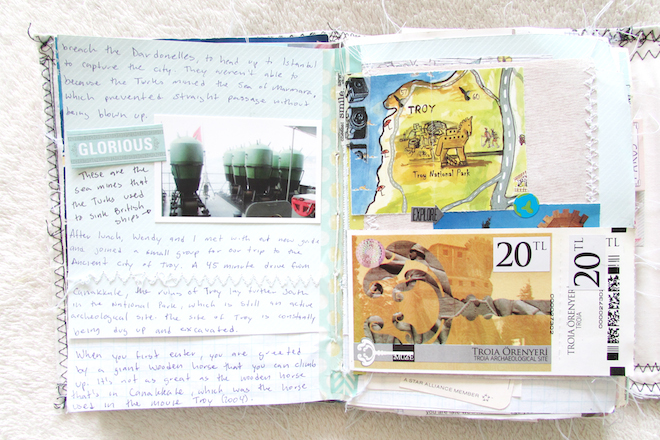 breach the Dardonelles, to head up to Istanbul
to capture the city. They weren't able to
because the Turks mined the Sea of Marmara,
which prevented straight passage without
being blown up.
GLORIOUS
These are the
sea mines that
the Turks used
to sink British
ships
After lunch, Wendy and I met with our new guide
and joined a small group for our trip to the
Ancient city of Troy. A 45 minute drive from
Canakkale, the ruins of Troy lay further South
in the National Park, which is still an active
archeological site. The site of Troy is constantly
being dug up and excavated.
When you first enter, you are greeted
by a giant wooden horse that you can climb
up. It's not as great as the wooden horse
that's in Canakkale, which was the horse
used in the movie Troy (2004).
smile
TROY
Troy National Park
EXPLORE
20 TL
TROIA ÖRENYERİ
TROIA ARCHAEOLOGICAL SITE
MÜZE
20 TL
TROIA ÖRENYERİ
TROIA
A STAR ALLIANCE MEMBER